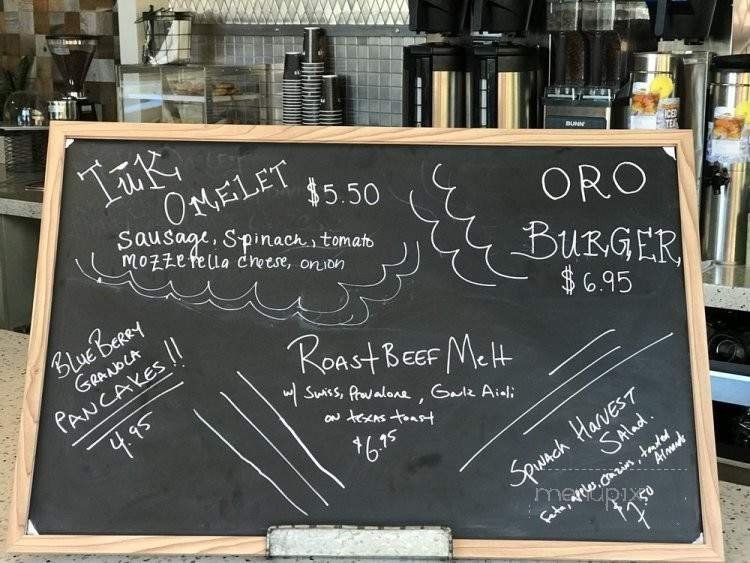 TüK
OMELET $5.50
Sausage, Spinach, tomato
mozzerella cheese, onion
ORO
BURGER
$6.95
BLUEBERRY
GRANOLA
PANCAKES!!
4.95
ROAST BEEF MELT
w/ Swiss, Provalone, Garlic Aioli
on texas toast
$6.95
SPINACH HARVEST
SALAD.
Feta, apples, craisins, toasted
Almonds
$7.50
menupix
BUNN
ICED
TEA